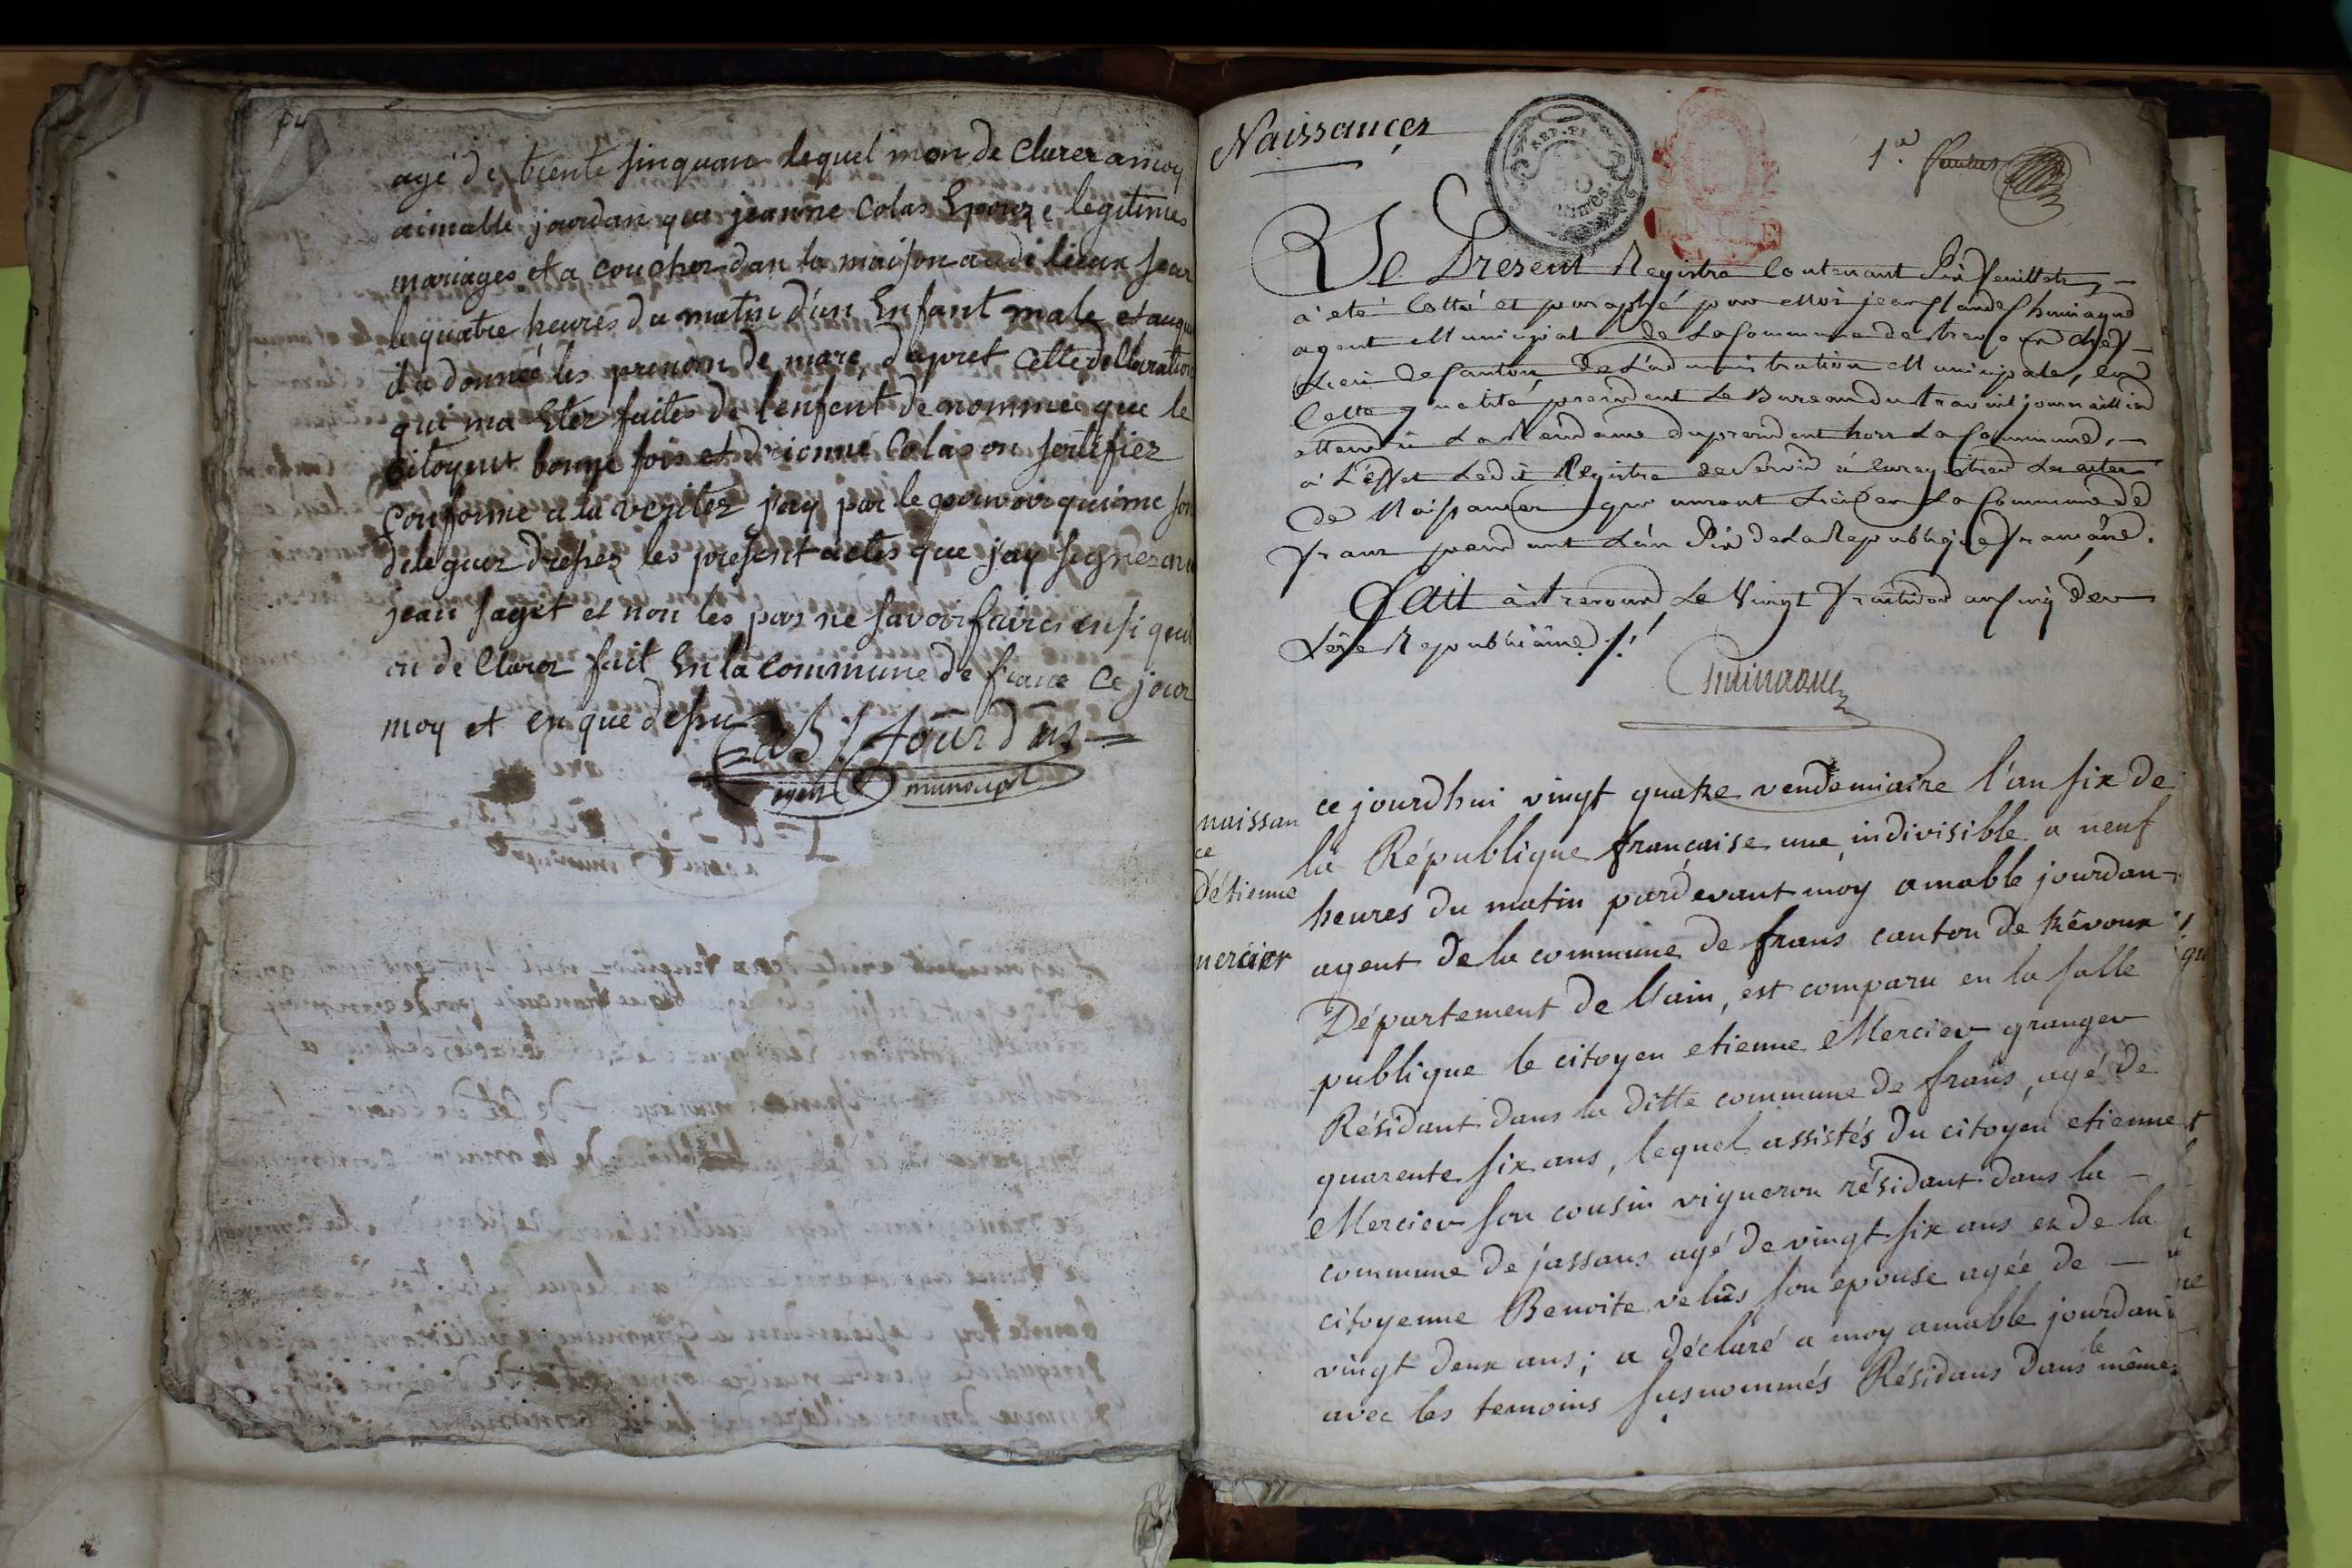 agé de trente sinquan lequel mon de clarer a moy
aimable jourdan que jeanne Colas Epouze legitimes
mariages et a coucher dan la maison audi lieux sour
le quatre heures du matin d'un Enfant male et auquel
il a donneé les prenom de marc, dapret cette dellaration
qui ma Eter faites de l'enfent denommée que le
Citoyent bonne fois et Colas on sertifiez
Conforme a la veritez j'ay par le pouvoir qui me son
deleguez dresses les present actes que j'ay signez
jean saget et non les pas ne savoir faires ensi quil
on de Clarer fait En la Commune de france Ce jour
moy et en que desu
Jourdan
agent municipal
Naissances
1.
Le Present Registre Contenant Six feuillets,
à été Cotté et paraphé par Moi jean
agent Municipal de La Commune de trevoux chef
Lieu de Canton, de L'administration Municipale, en
Cette qualité president Le Bureau du travail journaillier
attendu La du president hors La Commune,
à L'effet Ledit Registre de Servir à Enregistrer Les actes
de Naissances qui auront Lieu en La Commune de
frans pendant L'an Six de La Republique française.
Fait à trevoux, Le Vingt fructidor an cinq de
L'ère Republicaine ./.
naissan
ce
d'étienne
mercier
ce jourdhui vingt quatre vendemiaire l'an six de
la République française une, indivisible a neuf
heures du matin pardevant moy amable jourdan
agent de la commune de frans canton de trévoux
Département de l'ain, est comparu en la salle
publique le citoyen etienne Mercier granger
Résidant dans la ditte commune de frans, agé de
quarente six ans, lequel assistés du citoyen etienne
Mercier son cousin vigneron résidant dans la
commune de jassans agé de vingt six ans et de la
citoyenne Benoite velus son epouse agée de
vingt deux ans; a déclaré a moy amable jourdan
avec les temoins susnommés Résidans dans le même